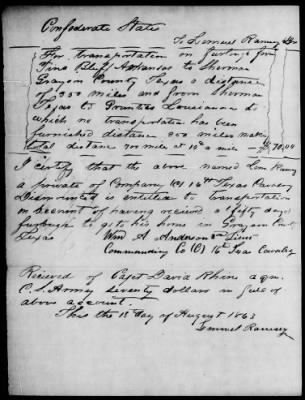 Confederate States
To Lemuel Ramsey Dr
For transportation on furlough from
Pine Bluff Arkansas to Sherman
Grayson County Texas a distance
of 350 miles and from Sherman
Texas to Louisiana
which no transportation has been
furnished distance 300 miles making
total distance 700 miles at 10c a mile $70.00
I certify that the above named Lem Ramsey
a private of Company 16th Texas Cavalry
Dismounted is entitled to transportation
on account of having received a fifty days
furlough to go to his home in Grayson County
Texas
Wm A Anderson 2nd Lieut
Commanding Co 16th Texas Cavalry
Received of Capt David Rhine aqm
C. S. Army seventy dollars in full of
above account.
This the 13 day of August 1863
Lemuel Ramsey